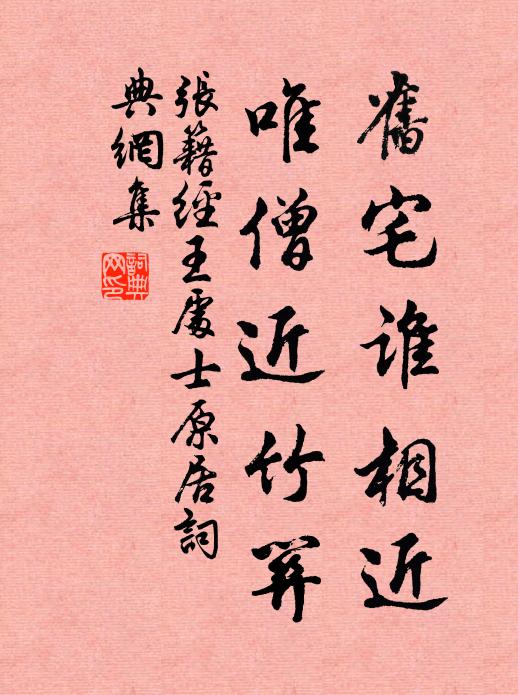 舊宅誰相近
唯僧近竹關
張籍經王處士原居詞
典網集
詞典
网印